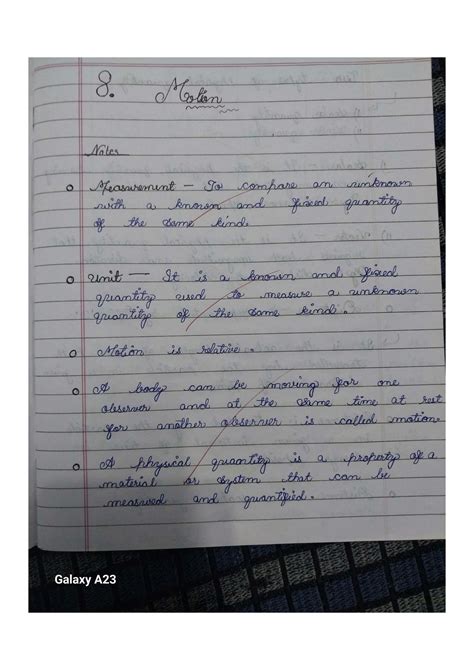 8. Motion
Notes
Measurement — To compare an unknown
with a known and fixed quantity
of the same kind.
Unit — It is a known and fixed
quantity used to measure a unknown
quantity of the same kind.
Motion is relative.
A body can be moving for one
observer and at the same time at rest
for another observer is called motion.
A physical quantity is a property of a
material or system that can be
measured and quantified.
Galaxy A23